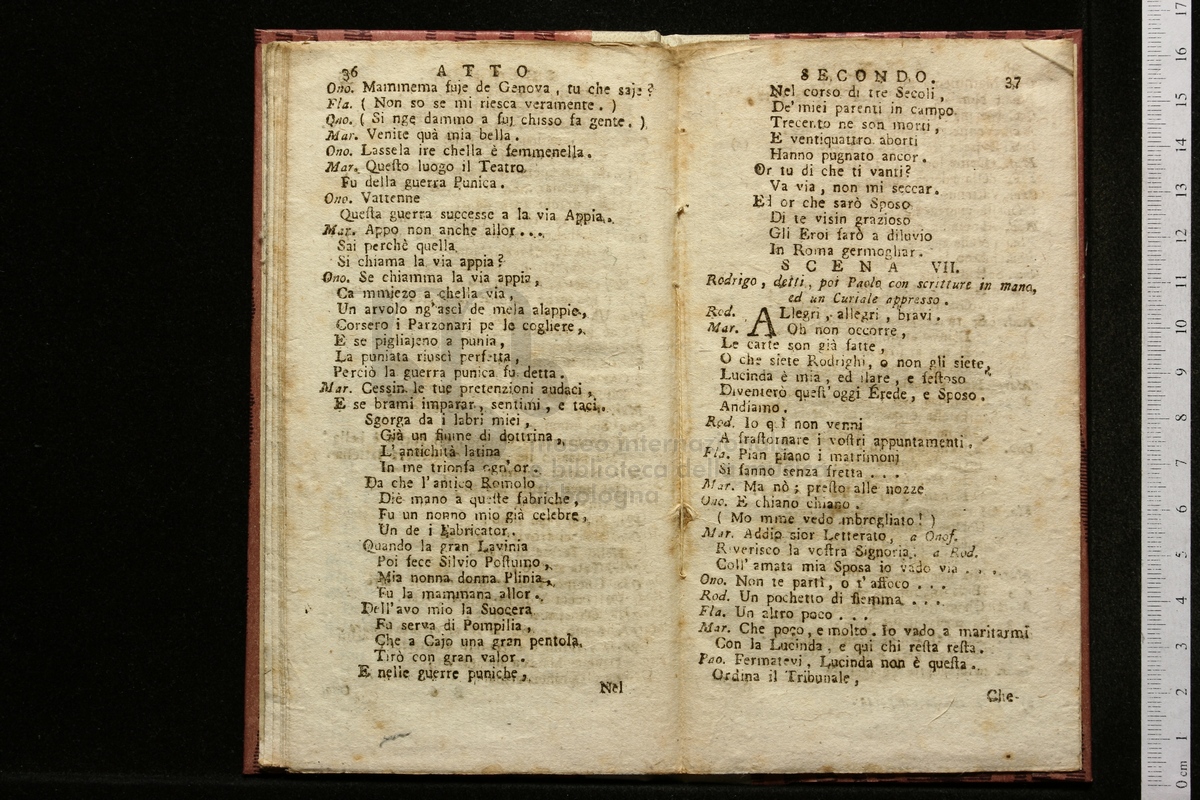 36 ATTO
Ono. Mammema fuje de Genova, tu che saje?
Fla. ( Non so se mi riesca veramente. )
Ono. ( Si nge dammo a fuj chisso fa gente. )
Mar. Venite quà mia bella.
Ono. Lassela ire chella è femmenella.
Mar. Queſto luogo il Teatro
Fu della guerra Punica.
Ono. Vattenne
Queſta guerra successe a la via Appia.
Mar. Appo non anche allor....
Sai perchè quella
Si chiama la via appia?
Ono. Se chiamma la via appia,
Ca mmiezo a chella via,
Un arvolo ng'ascì de mela alappie,
Corsero i Parzonari pe le cogliere,
E se pigliajeno a punia,
La puniata riuscì perfetta,
Perciò la guerra punica fu detta.
Mar. Cessin le tue pretenzioni audaci,
E se brami imparar, sentimi, e taci.
Sgorga da i labri miei,
Già un fiume di dottrina,
L'antichità latina
In me trionfa ogn'or.
Da che l'antico Romolo
Diè mano a queste fabriche,
Fu un nonno mio già celebre,
Un de i Fabricator.
Quando la gran Lavinia
Poi fece Silvio Poſtumo,
Mia nonna donna Plinia,
Fu la mammana allor.
Dell'avo mio la Suocera
Fu serva di Pompilia,
Che a Cajo una gran pentola
Tirò con gran valor.
E nelle guerre puniche,
Nel
SECONDO. 37
Nel corso di tre Secoli,
De' miei parenti in campo
Trecento ne son morti,
E ventiquattro aborti
Hanno pugnato ancor.
Or tu di che ti vanti?
Va via, non mi seccar.
Ed or che sarò Sposo
Di te visin grazioso
Gli Eroi farò a diluvio
In Roma germogliar.
SCENA VII.
Rodrigo, detti, poi Paolo con scritture in mano,
ed un Curiale appresso.
Rod. ALlegri, allegri, bravi.
Mar. Oh non occorre,
Le carte son già fatte,
O che siete Rodrighi, o non gli siete,
Lucinda è mia, ed ilare, e feſtoso
Diventerò queſt'oggi Erede, e Sposo.
Andiamo.
Rod. Io quì non venni
A fraſtornare i voſtri appuntamenti.
Fla. Pian piano i matrimonj
Si fanno senza fretta ...
Mar. Ma nò; preſto alle nozze
Ono. E chiano chiano.
( Mo mme vedo mbrogliato! )
Mar. Addio sior Letterato, a Onof.
Riverisco la voſtra Signoria. a Rod.
Coll'amata mia Sposa io vado via ....
Ono. Non te partì, o t'affoco ...
Rod. Un pochetto di flemma ...
Fla. Un altro poco ...
Mar. Che poco, e molto. Io vado a maritarmi
Con la Lucinda, e qui chi reſta reſta.
Pao. Fermatevi, Lucinda non è queſta.
Ordina il Tribunale,
Che-